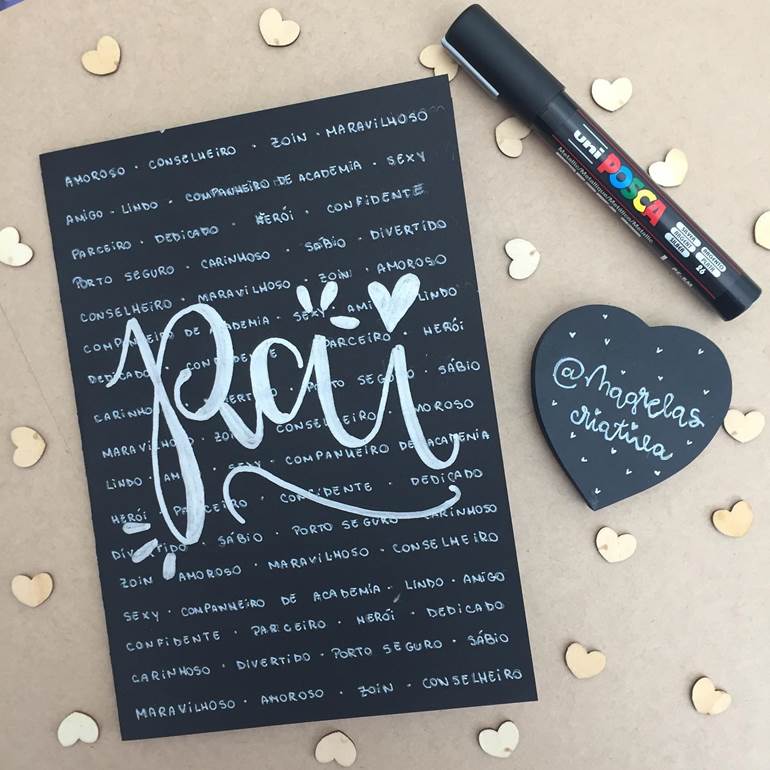 AMOROSO · CONSELHEIRO · ZOIN · MARAVILHOSO
AMIGO · LINDO · COMPANHEIRO DE ACADEMIA · SEXY
PARCEIRO · DEDICADO · HERÓI · CONFIDENTE
PORTO SEGURO · CARINHOSO · SÁBIO · DIVERTIDO
CONSELHEIRO · MARAVILHOSO · ZOIN · AMOROSO
COMPANHEIRO DE ACADEMIA · SEXY · AMIGO · LINDO
DEDICADO · CONFIDENTE · PARCEIRO · HERÓI
CARINHOSO · DIVERTIDO · PORTO SEGURO · SÁBIO
Pai
MARAVILHOSO · ZOIN · CONSELHEIRO · AMOROSO
LINDO · AMIGO · SEXY · COMPANHEIRO DE ACADEMIA
HERÓI · PARCEIRO · CONFIDENTE · DEDICADO
DIVERTIDO · SÁBIO · PORTO SEGURO · CARINHOSO
ZOIN · AMOROSO · MARAVILHOSO · CONSELHEIRO
SEXY · COMPANHEIRO DE ACADEMIA · LINDO · AMIGO
CONFIDENTE · PARCEIRO · HERÓI · DEDICADO
CARINHOSO · DIVERTIDO · PORTO SEGURO · SÁBIO
MARAVILHOSO · AMOROSO · ZOIN · CONSELHEIRO
uni POSCA
Metallic/Metallique/Metallic/Metallic
SILVER ARGENTO
ARGENT PLATA
SILBER 26
@magrelas
criativa